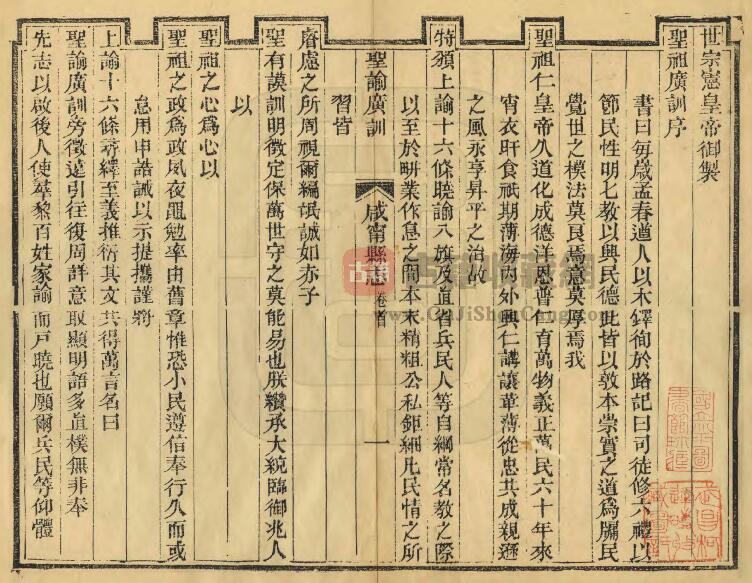 世宗憲皇帝御製
聖祖廣訓序
書曰每歲孟春遒人以木鐸徇於路記曰司徒修六禮以
節民性明七教以興民德此皆以敦本崇實之道爲牖民
覺世之模法莫良焉意莫厚焉我
聖祖仁皇帝久道化成德洋恩普仁育萬物義正萬民六十年來
宵衣旰食祇期薄海內外興仁講讓革薄從忠共成親遜
之風永享昇平之治故
特頒上諭十六條曉諭八旗及直省兵民人等自綱常名教之際
以至於耕桑作息之間本末精粗公私鉅細凡民情之所
習皆
聖諭廣訓
咸甯縣志 卷首
一
睿慮之所周視爾編氓誠如赤子
聖有謨訓明徵定保萬世守之莫能易也朕纘承大統臨御兆人
以
聖祖之心爲心以
聖祖之政爲政夙夜黽勉率由舊章惟恐小民遵信奉行久而或
怠用申誥誡以示提撕謹將
上諭十六條尋繹其義推衍其文共得萬言名曰
聖諭廣訓旁徵遠引往復周詳意取顯明語多直樸無非奉
先志以啟後人使羣黎百姓家諭而戶曉也願爾兵民等仰體
古籍收藏網
www.GuJiShouCang.Com